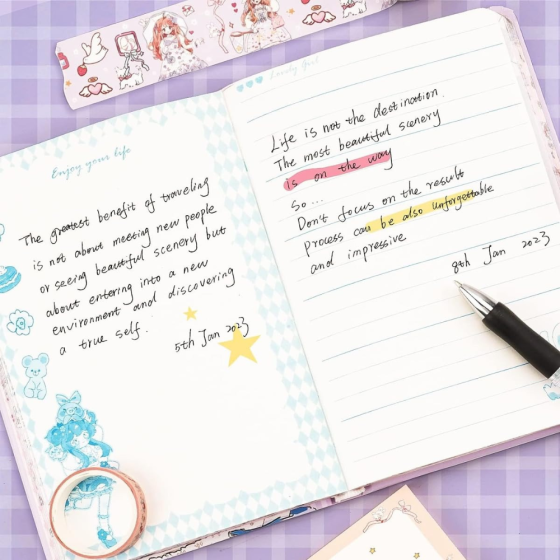 Enjoy your life
The greatest benefit of traveling
is not about meeting new people
or seeing beautiful scenery but
about entering into a new
environment and discovering
a true self.
5th Jan 2023
Lovely Girl
Life is not the destination.
The most beautiful scenery
is on the way
So...
Don't focus on the result
process can be also unforgettable
and impressive
8th Jan 2023